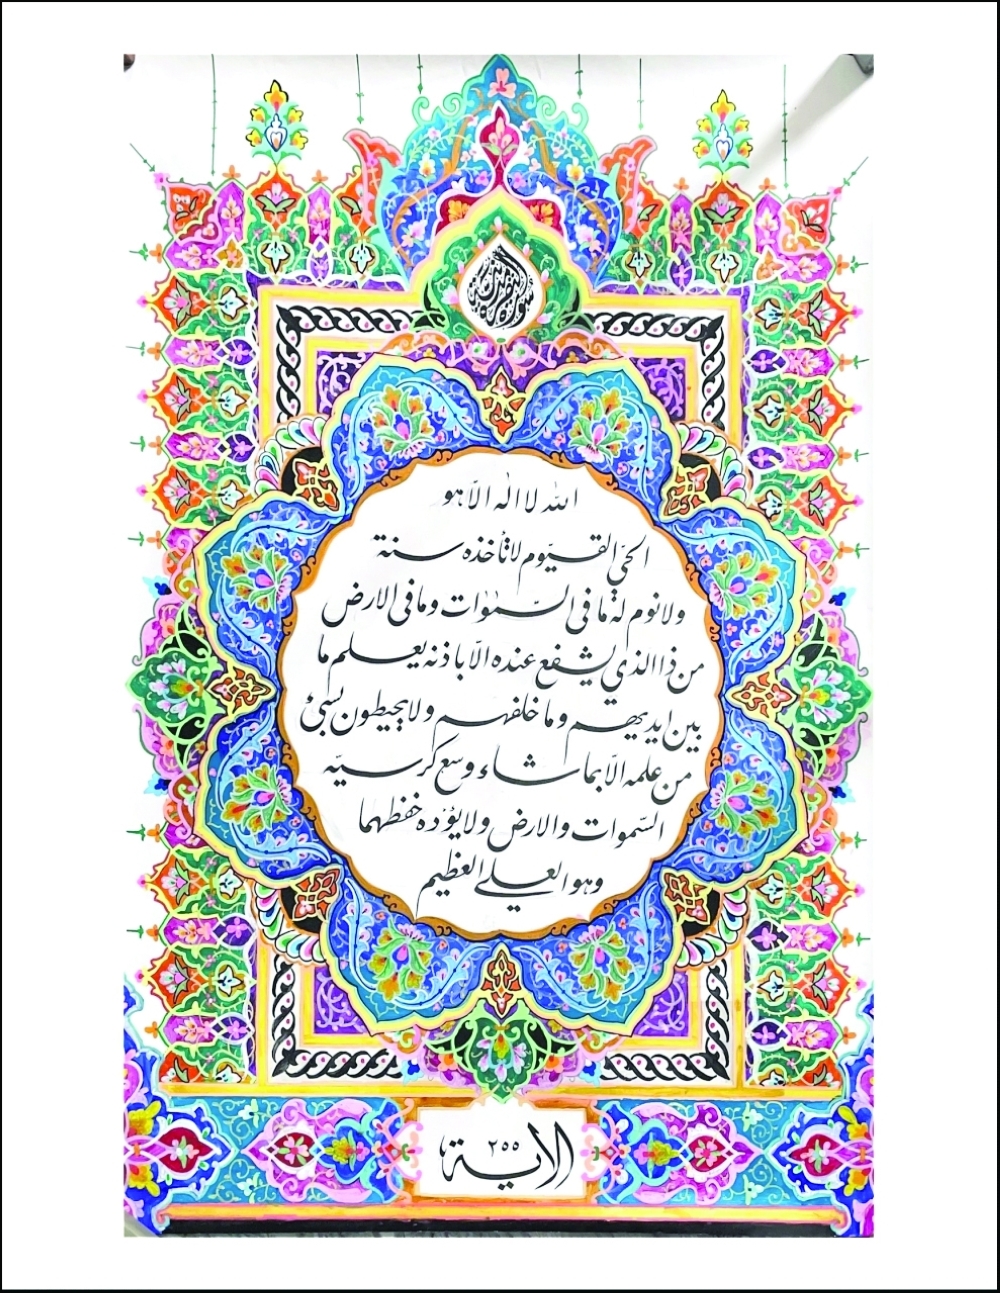 سورة البقرة
الله لا اله الّا هو
الحيّ القيّوم لا تأخذه سنة
ولا نوم له ما في السّمٰوات وما في الارض
من ذا الذي يشفع عنده الّا باذنه يعلم ما
بين ايديهم وما خلفهم ولا يحيطون بشئ
من علمه الّا بما شاء وسع كرسيّه
السّموات والارض ولا يؤده حفظهما
وهو العلي العظيم
الاية ٢٥٥